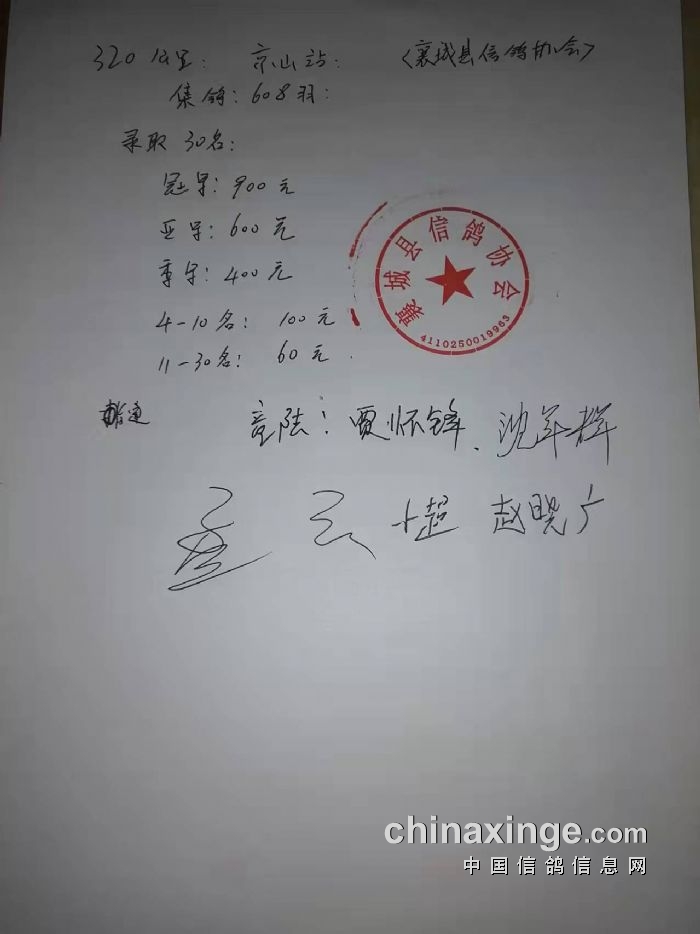 320公里： 京山站： 〈襄城县信鸽协会〉
集鸽：608羽：
录取 30名：
冠军：900元
亚军：600元
季军：400元
4-10名： 100元
11-30名： 60元
襄城县信鸽协会
4110250019963
贾怀锋、沈军辉
小超 赵晓广
chinaxinge.com
中国信鸽信息网